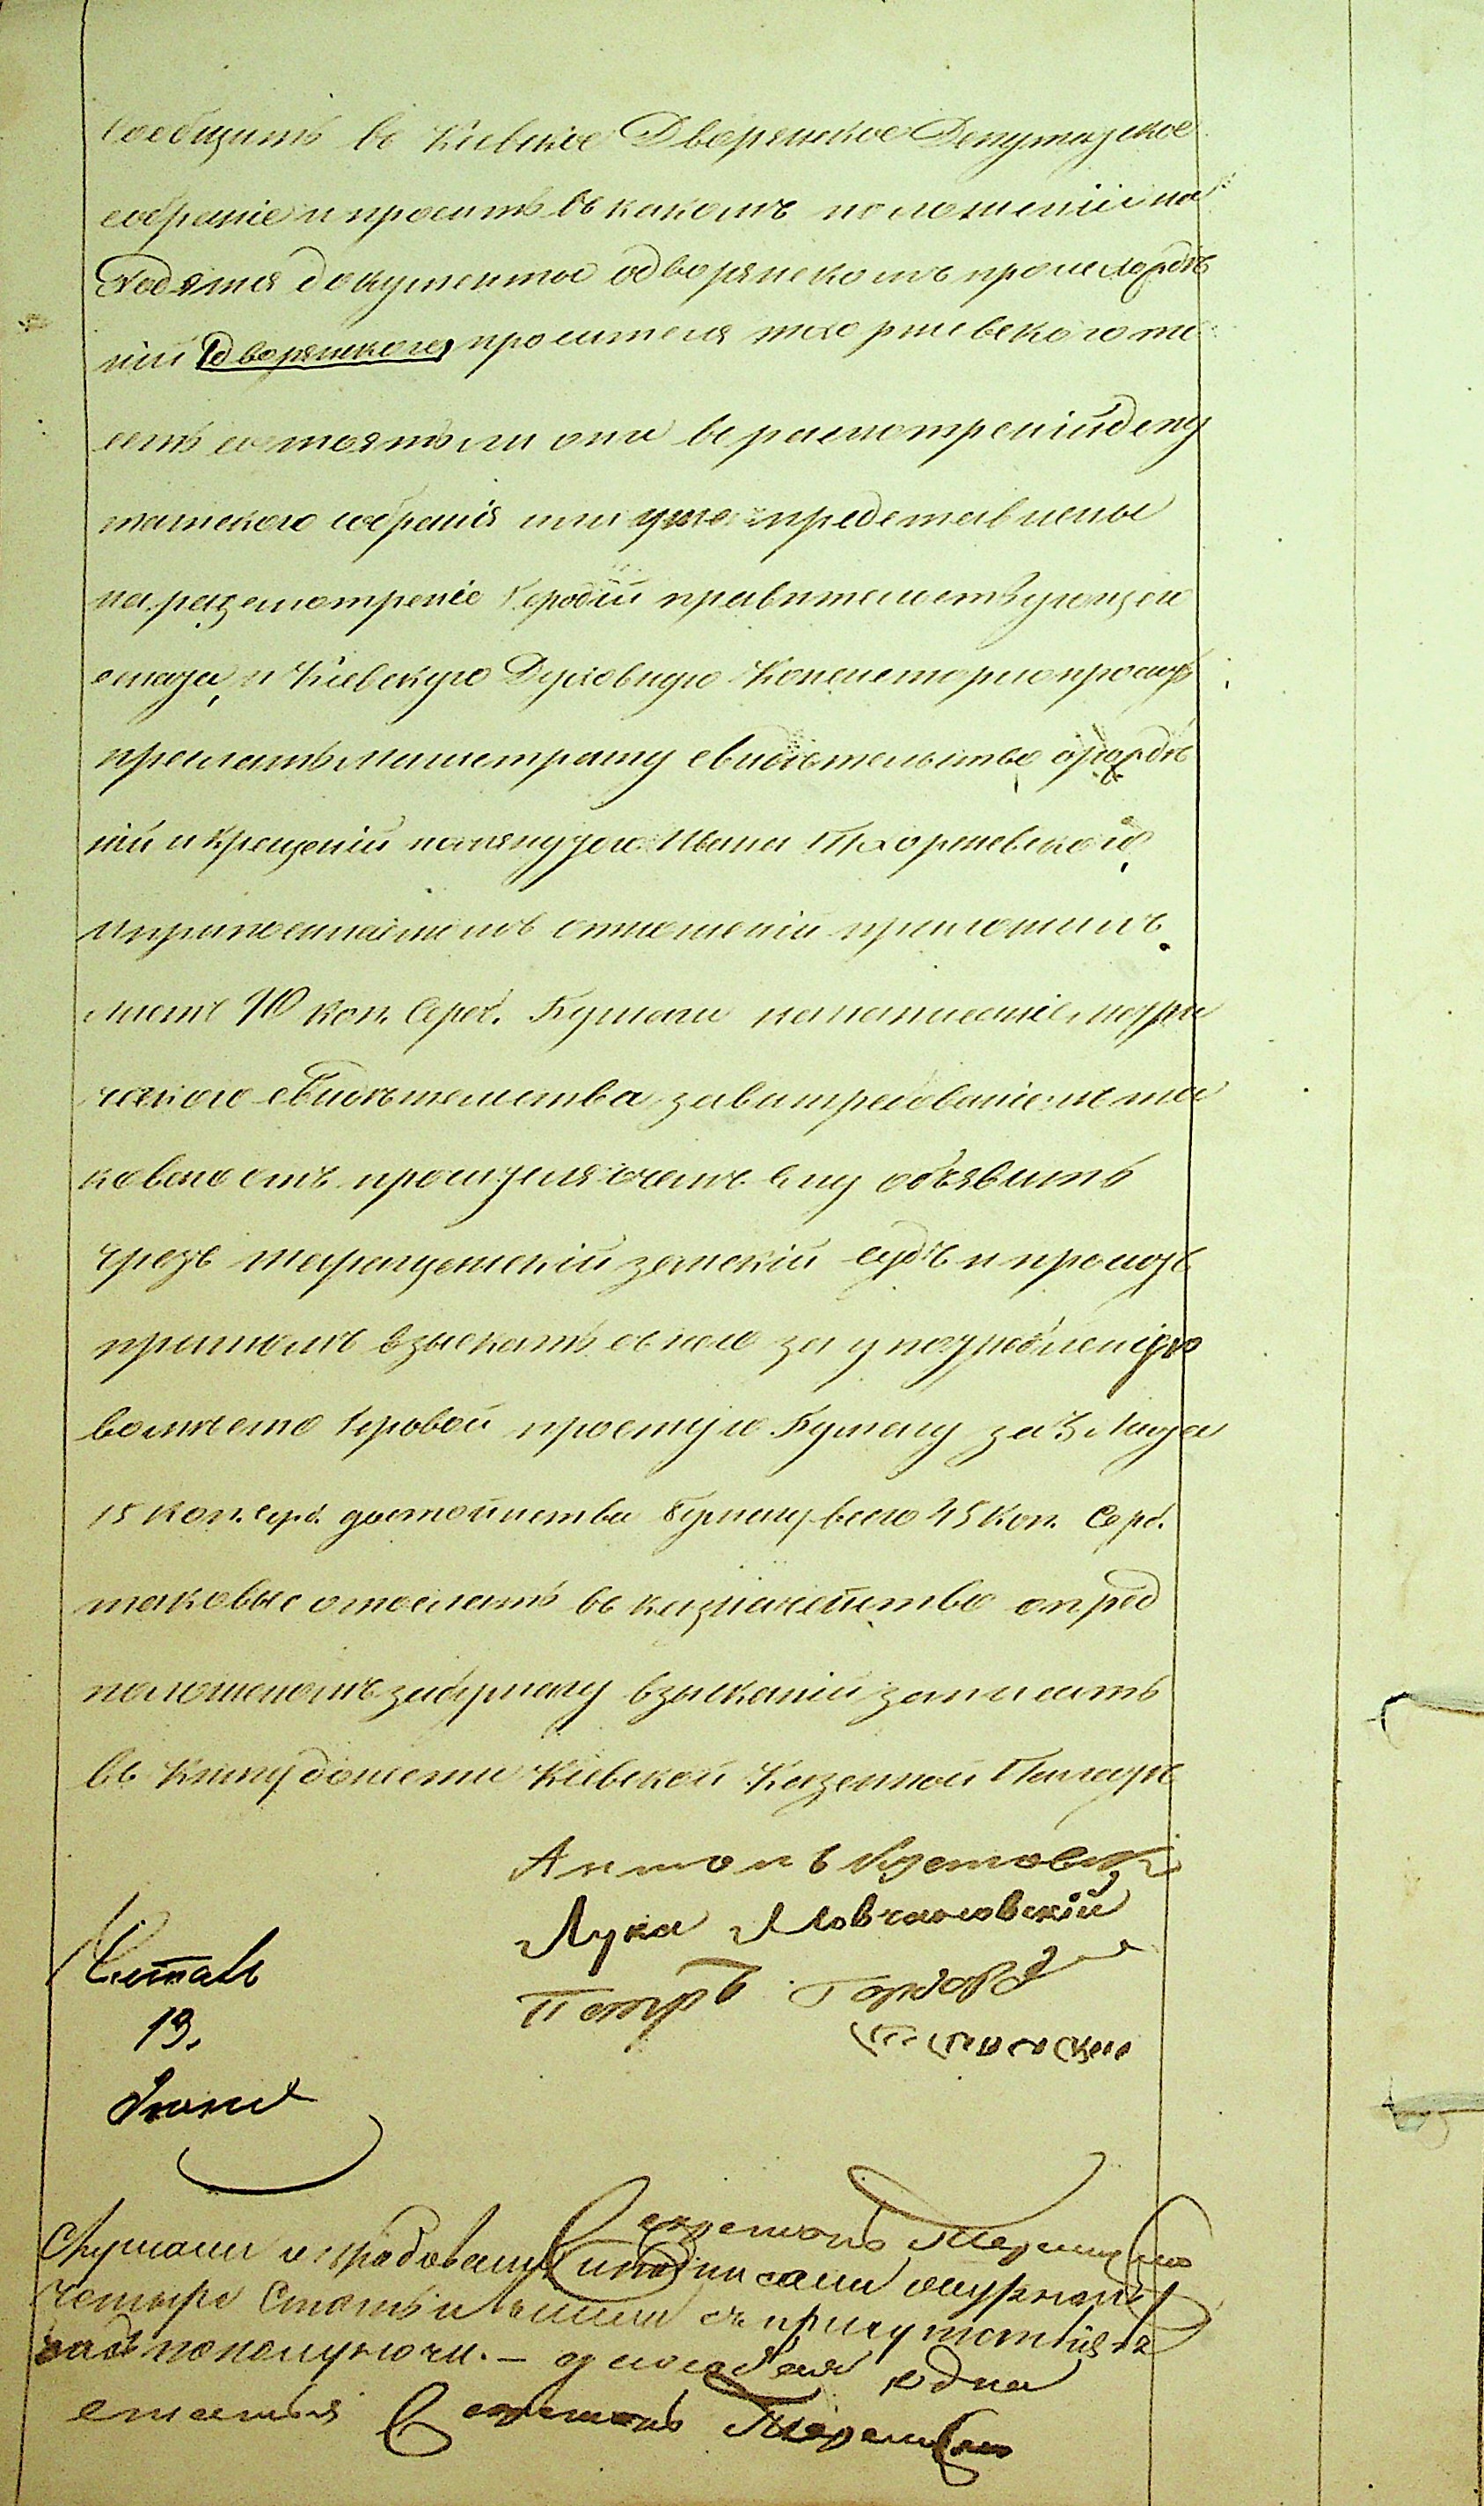 сообщить въ Кіевское Дворянское Депутатское
собраніе и просить въ какомъ положеніи на
ходятся документы о дворянскомъ происхожде
ніи дворянского просителя Тхоржевского то
есть состоятъ ли они въ расмотреніи депу
татского собранія или уже представлены
на разсмотреніе Герольдіи правительствующаго
сената, и Кіевскую Духовную Консисторію просить
прислать Магистрату свидѣтельство о рожде
ніи и крещеніи помянутого Ивана Тхоржевского
при отношеніи приложить
листъ 90 коп. сереб. бумаги на написаніе метри
ческого свидѣтельства за витребованіемъ та
кового отъ просителя о чемъ ему объявить
чрезъ Таращанскій земскій судъ и просить
притомъ взыскать съ него за употребленную
вомѣсто гербовой простую бумагу за 3 листа
15 коп. сер. достоинства бумагу всего 45 коп. сереб.
таковые отослать въ казначейство о пред
положеномъ за бумагу взысканіи записать
въ книгу донести Кіевской Казенной Палате
Антонъ
Лука Мовчановскій
Петръ
Читалъ
19.
Іюня
Секретарь
Слушали и подписали
четыре статьи вышли съ присутствія въ 2
часа пополудни. — одна
статья Секретарь